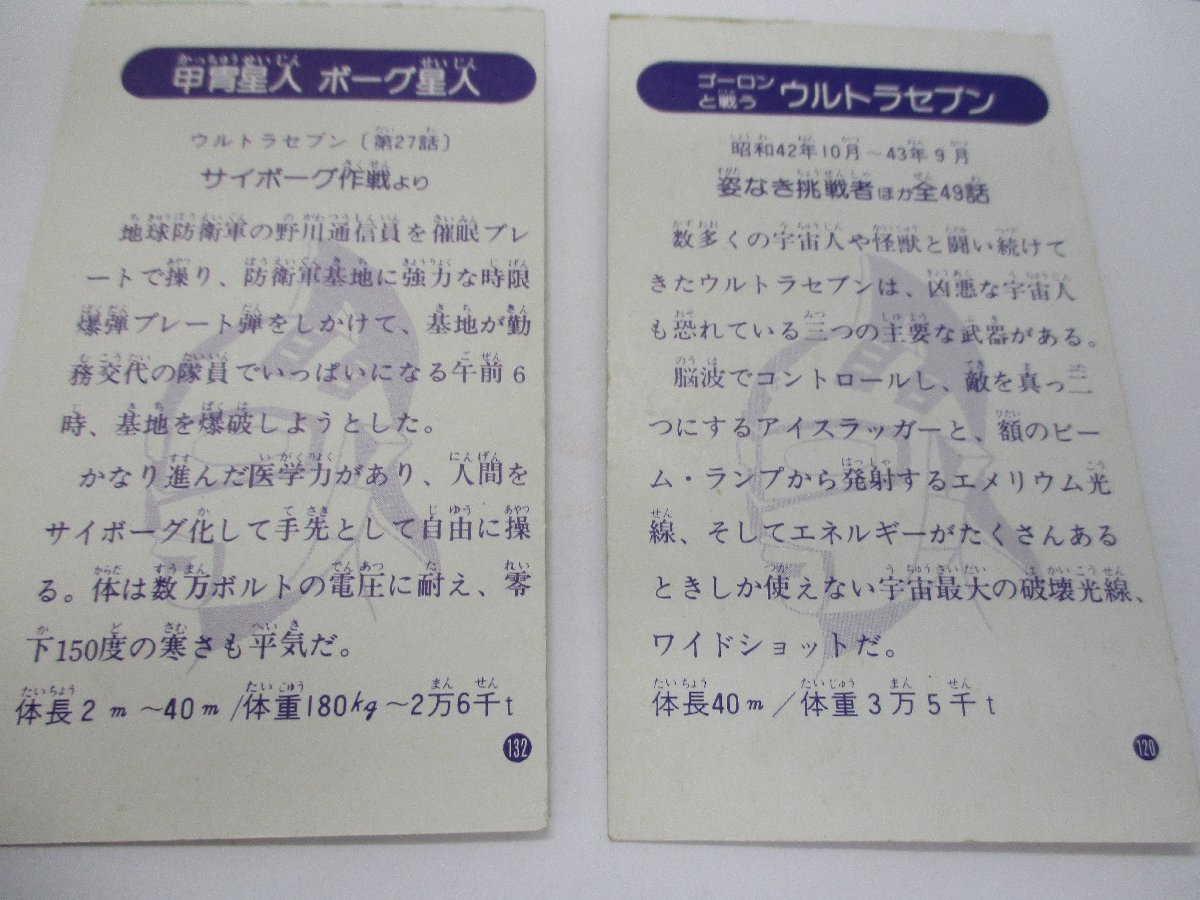 甲冑星人 ボーグ星人
ウルトラセブン〔第27話〕
サイボーグ作戦より
地球防衛軍の野川通信員を催眠プレ
ートで操り、防衛軍基地に強力な時限
爆弾プレート弾をしかけて、基地が勤
務交代の隊員でいっぱいになる午前6
時、基地を爆破しようとした。
かなり進んだ医学力があり、人間を
サイボーグ化して手先として自由に操
る。体は数万ボルトの電圧に耐え、零
下150度の寒さも平気だ。
体長2m～40m/体重180kg～2万6千t
132
ゴーロン
と戦う ウルトラセブン
昭和42年10月～43年9月
姿なき挑戦者ほか全49話
数多くの宇宙人や怪獣と闘い続けて
きたウルトラセブンは、凶悪な宇宙人
も恐れている三つの主要な武器がある。
脳波でコントロールし、敵を真っ二
つにするアイスラッガーと、額のビー
ム・ランプから発射するエメリウム光
線、そしてエネルギーがたくさんある
ときしか使えない宇宙最大の破壊光線、
ワイドショットだ。
体長40m/体重3万5千t
120